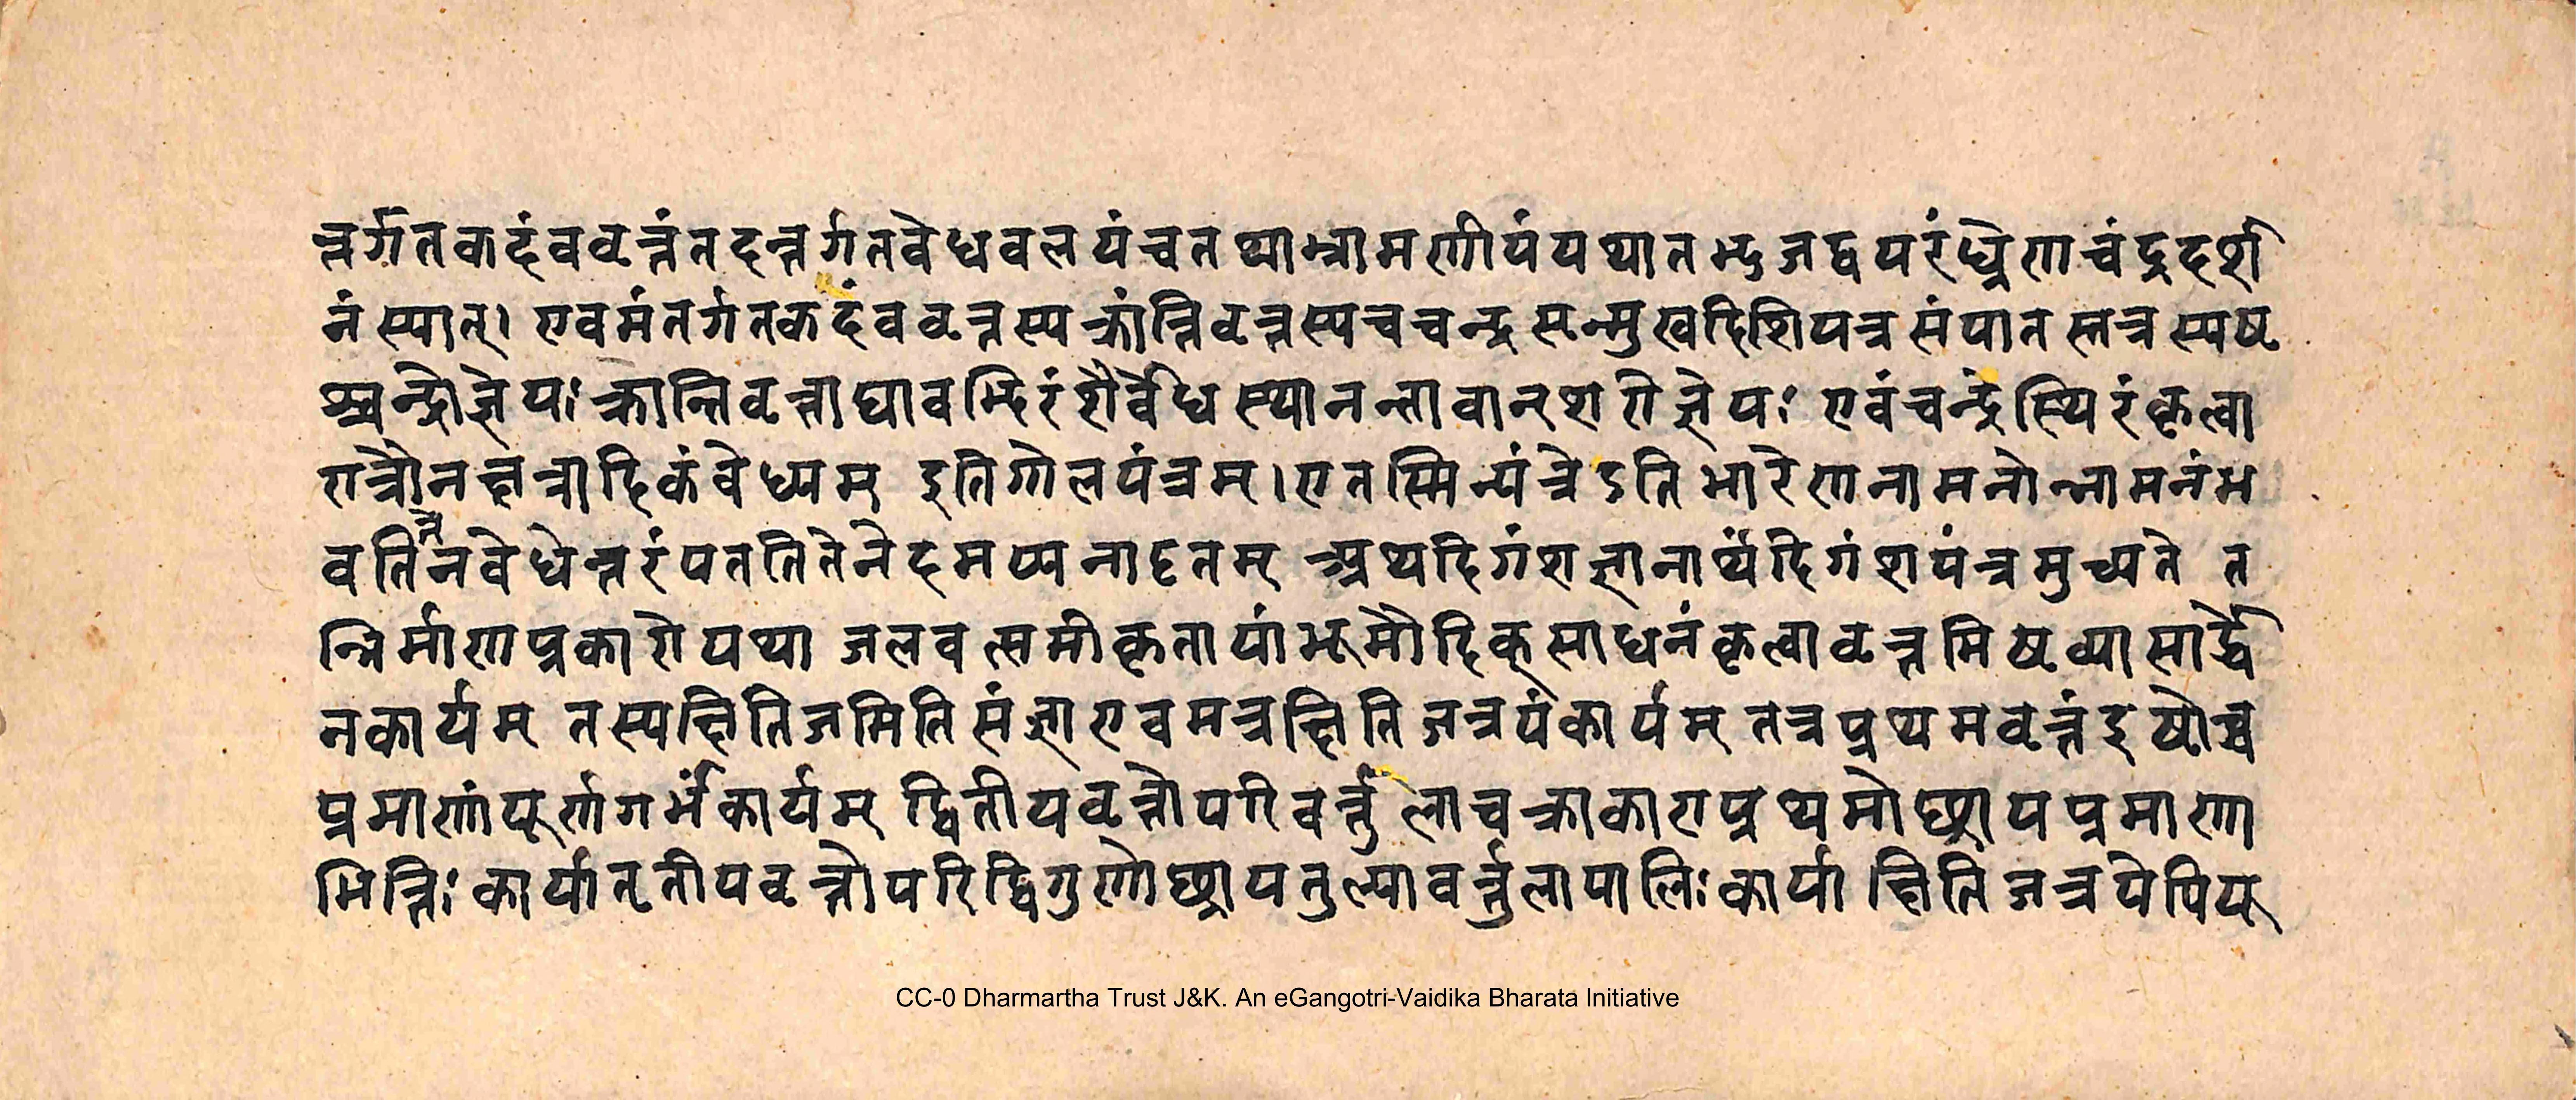 न्तर्गतकदंबवृत्तंतदन्तर्गतवेधवलयंचतथाभ्रामणीयंयथातद्भुजद्वयरंध्रेणचंद्रदर्श
नंस्यात्। एवमंतर्गतकदंबवृत्तस्यक्रांन्तिवृत्तस्यचचन्द्रसन्मुखदिशियत्रसंपातस्तत्रस्पष्ट
श्चन्द्रोज्ञेयः क्रान्तिवृत्ताद्यावद्भिरंशैर्वेधस्थानन्तावान्शरोज्ञेयः एवंचन्द्रेस्थिरंकृत्वा
रात्रौनक्षत्रादिकंवेध्यम् इतिगोलयंत्रम्। एतस्मिन्यंत्रेऽतिभारेणनामनोन्नामनंभ
वतितेनवेधेन्तरंपततितेनेदमप्यनादृतम् अथदिगंशज्ञानार्थंदिगंशयंत्रमुच्यते त
न्निर्माणप्रकारोयथा जलवत्समीकृतायांभूमौदिक्साधनंकृत्वावृत्तमिष्टव्यासार्द्धे
नकार्यम् तस्यक्षितिजमितिसंज्ञा एवमत्रक्षितिजत्रयंकार्यम् तत्रप्रथमवृत्तंइष्टोच्च
प्रमाणंपूर्णगर्भंकार्यम् द्वितीयवृत्तोपरिवर्त्तुलाचक्राकाराप्रथमोछ्रायप्रमाणा
भित्तिः कार्यातृतीयवृत्तोपरिद्विगुणोछ्रायतुल्यावर्त्तुलापालिः कार्या क्षितिजत्रयेपिपू
CC-0 Dharmartha Trust J&K. An eGangotri-Vaidika Bharata Initiative